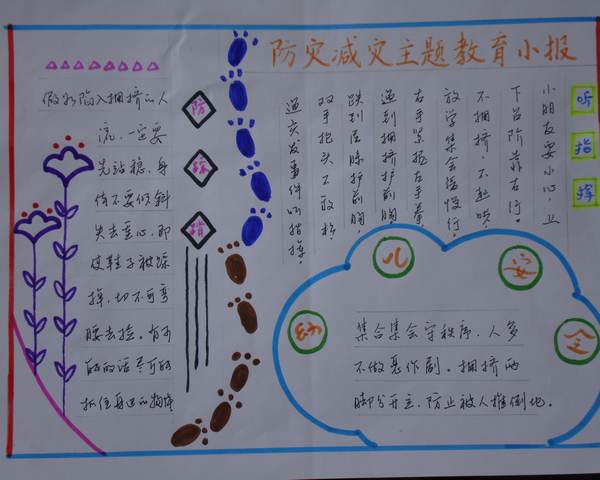 防灾减灾主题教育小报
听指挥
小朋友要小心,上
下台阶靠右行。
不拥挤、不起哄,
放学集会慢行。
右手紧握左手拳,
遇到拥挤护前胸,
跌到屈膝护前胸,
双手抱头不放松,
遇突发事件听指挥。
防踩踏
假如陷入拥挤的人
流,一定要
先站稳,身
体不要倾斜
失去重心,即
使鞋子被踩
掉,切不可弯
腰去捡。有可
能的话尽可能
抓住身边的物体
幼儿安全
集合集会守秩序,人多
不做恶作剧。拥挤两
脚分开立,防止被人推倒地。